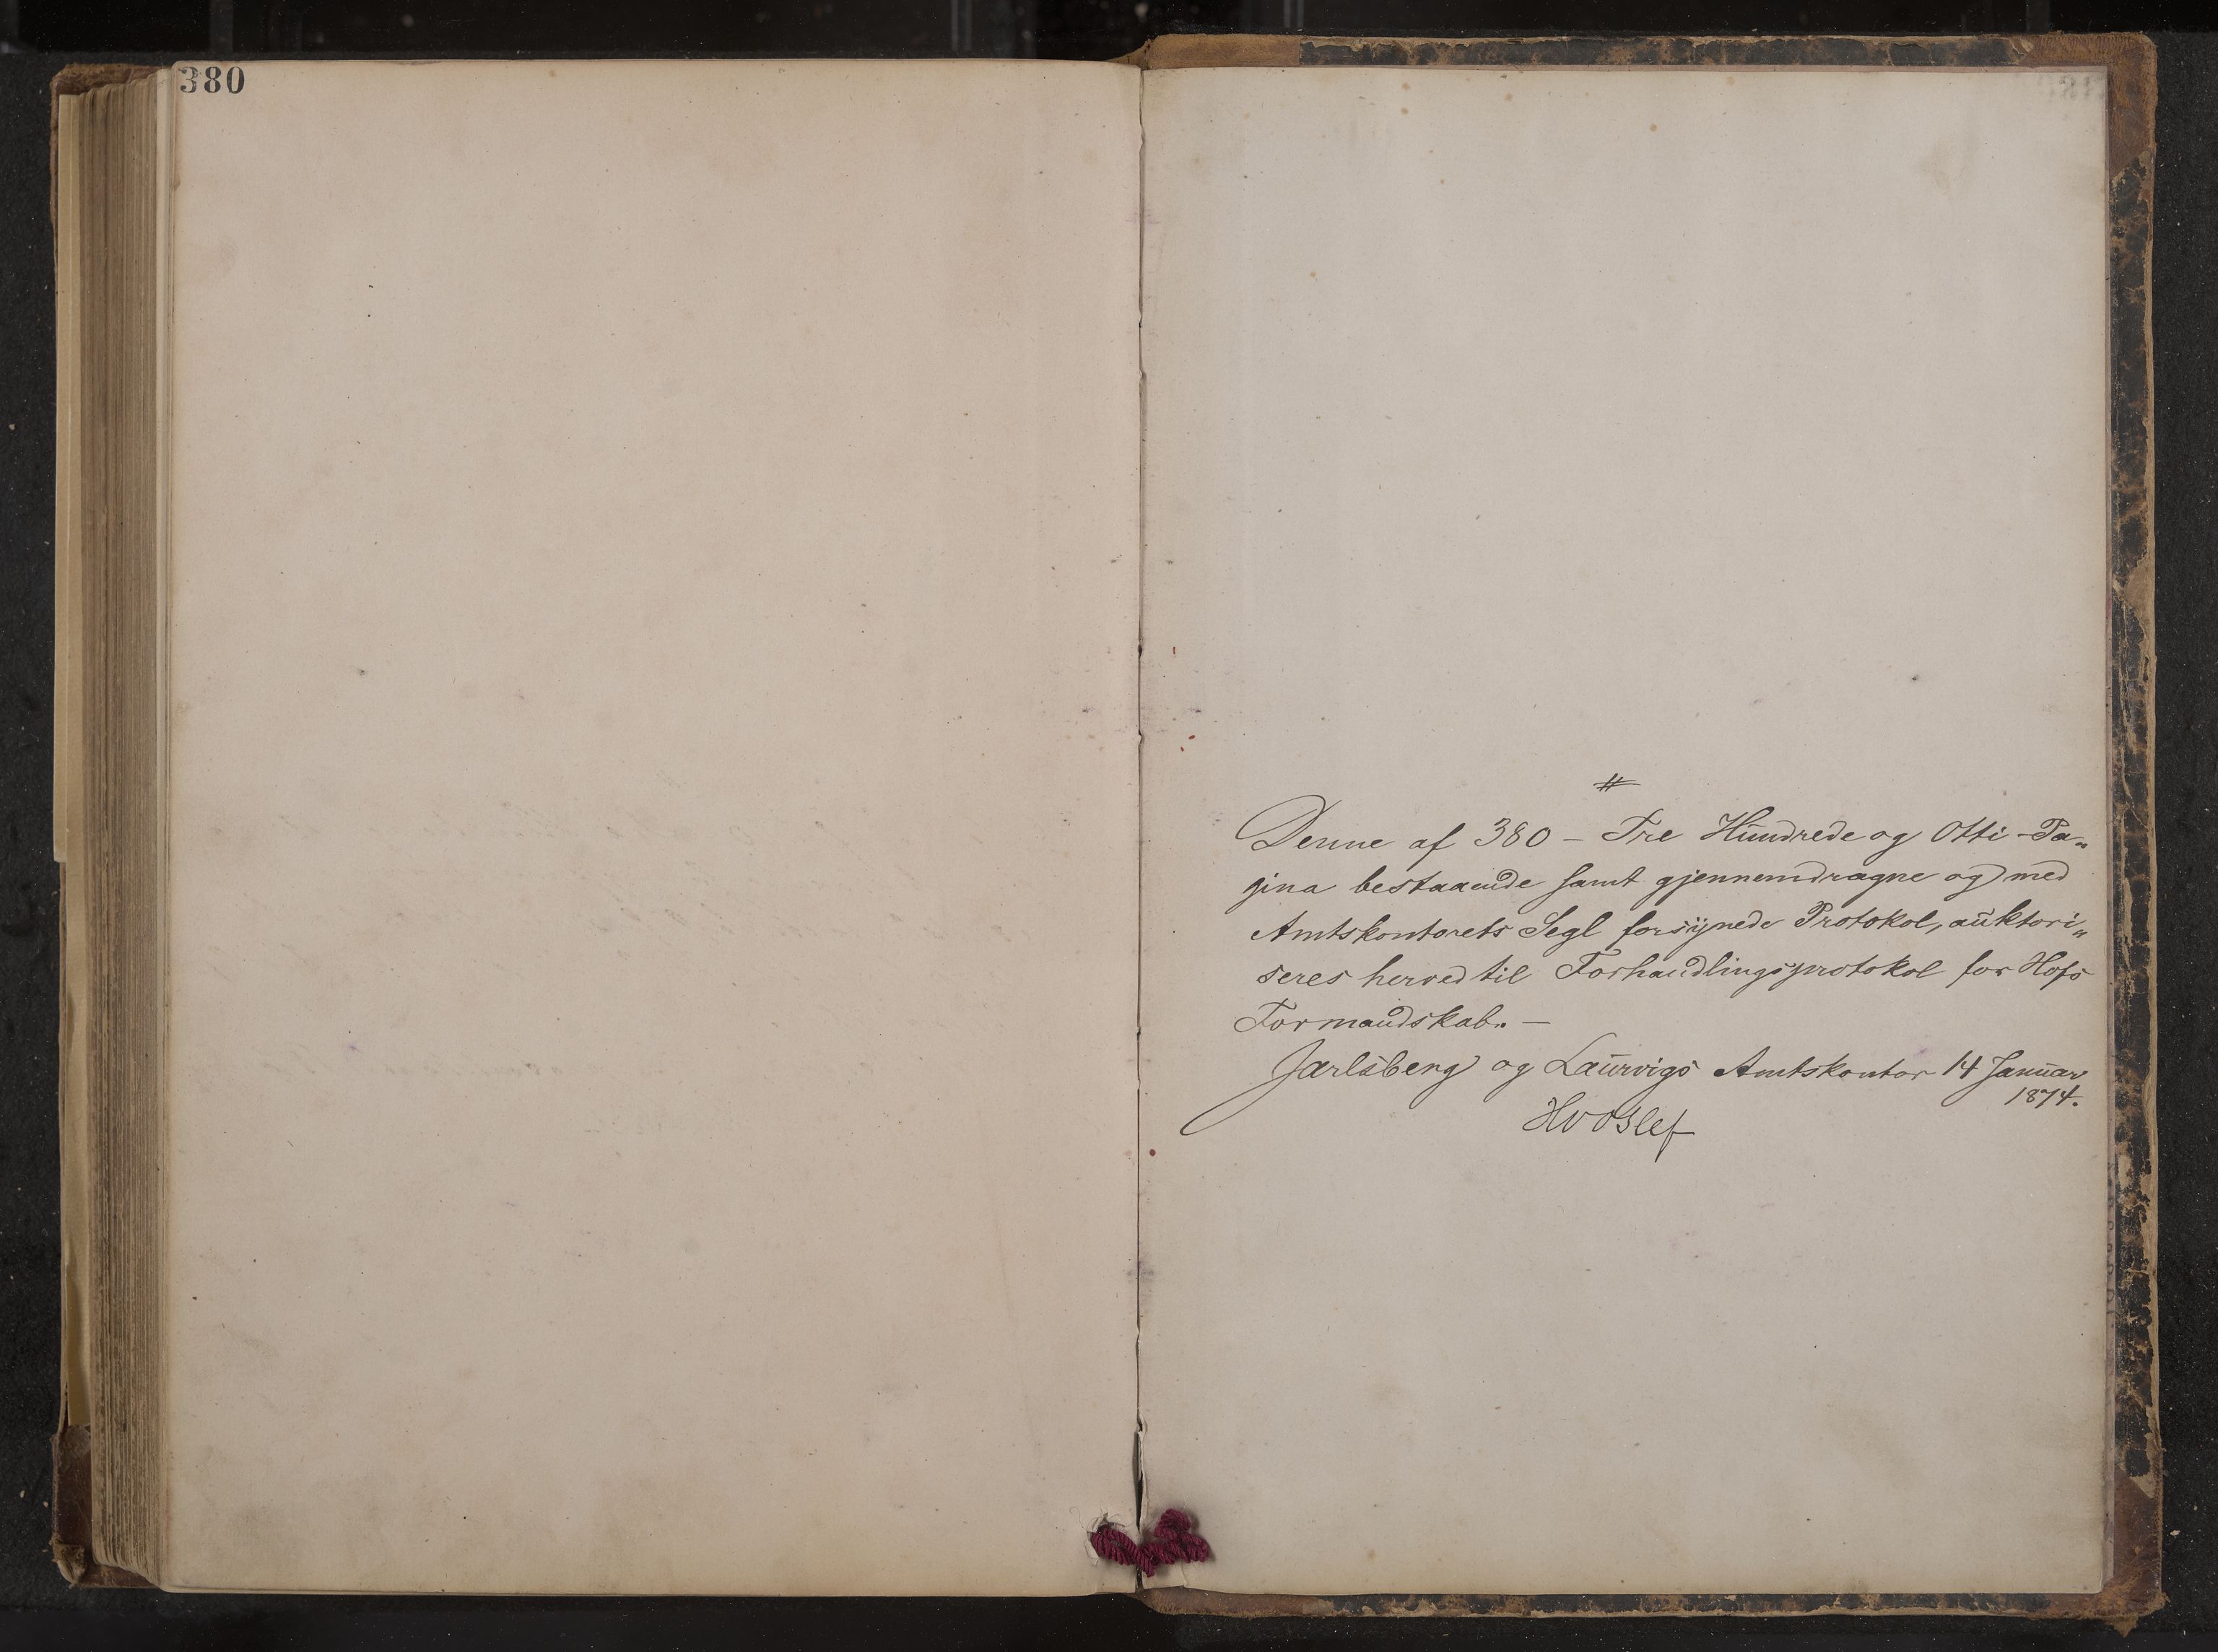 380
#
Denne af 380 – Tre Hundrede og Otti – Pa„
gina bestaaende samt gjennemdragne og med
Amtskontorets Segl forsynede Protokol, auktori„
seres herved til Forhandlingsprotokol for Hofs
Formandskab. –
Jarlsberg og Laurvigs Amtskontor 14 Januar
1874.
Hvoslef